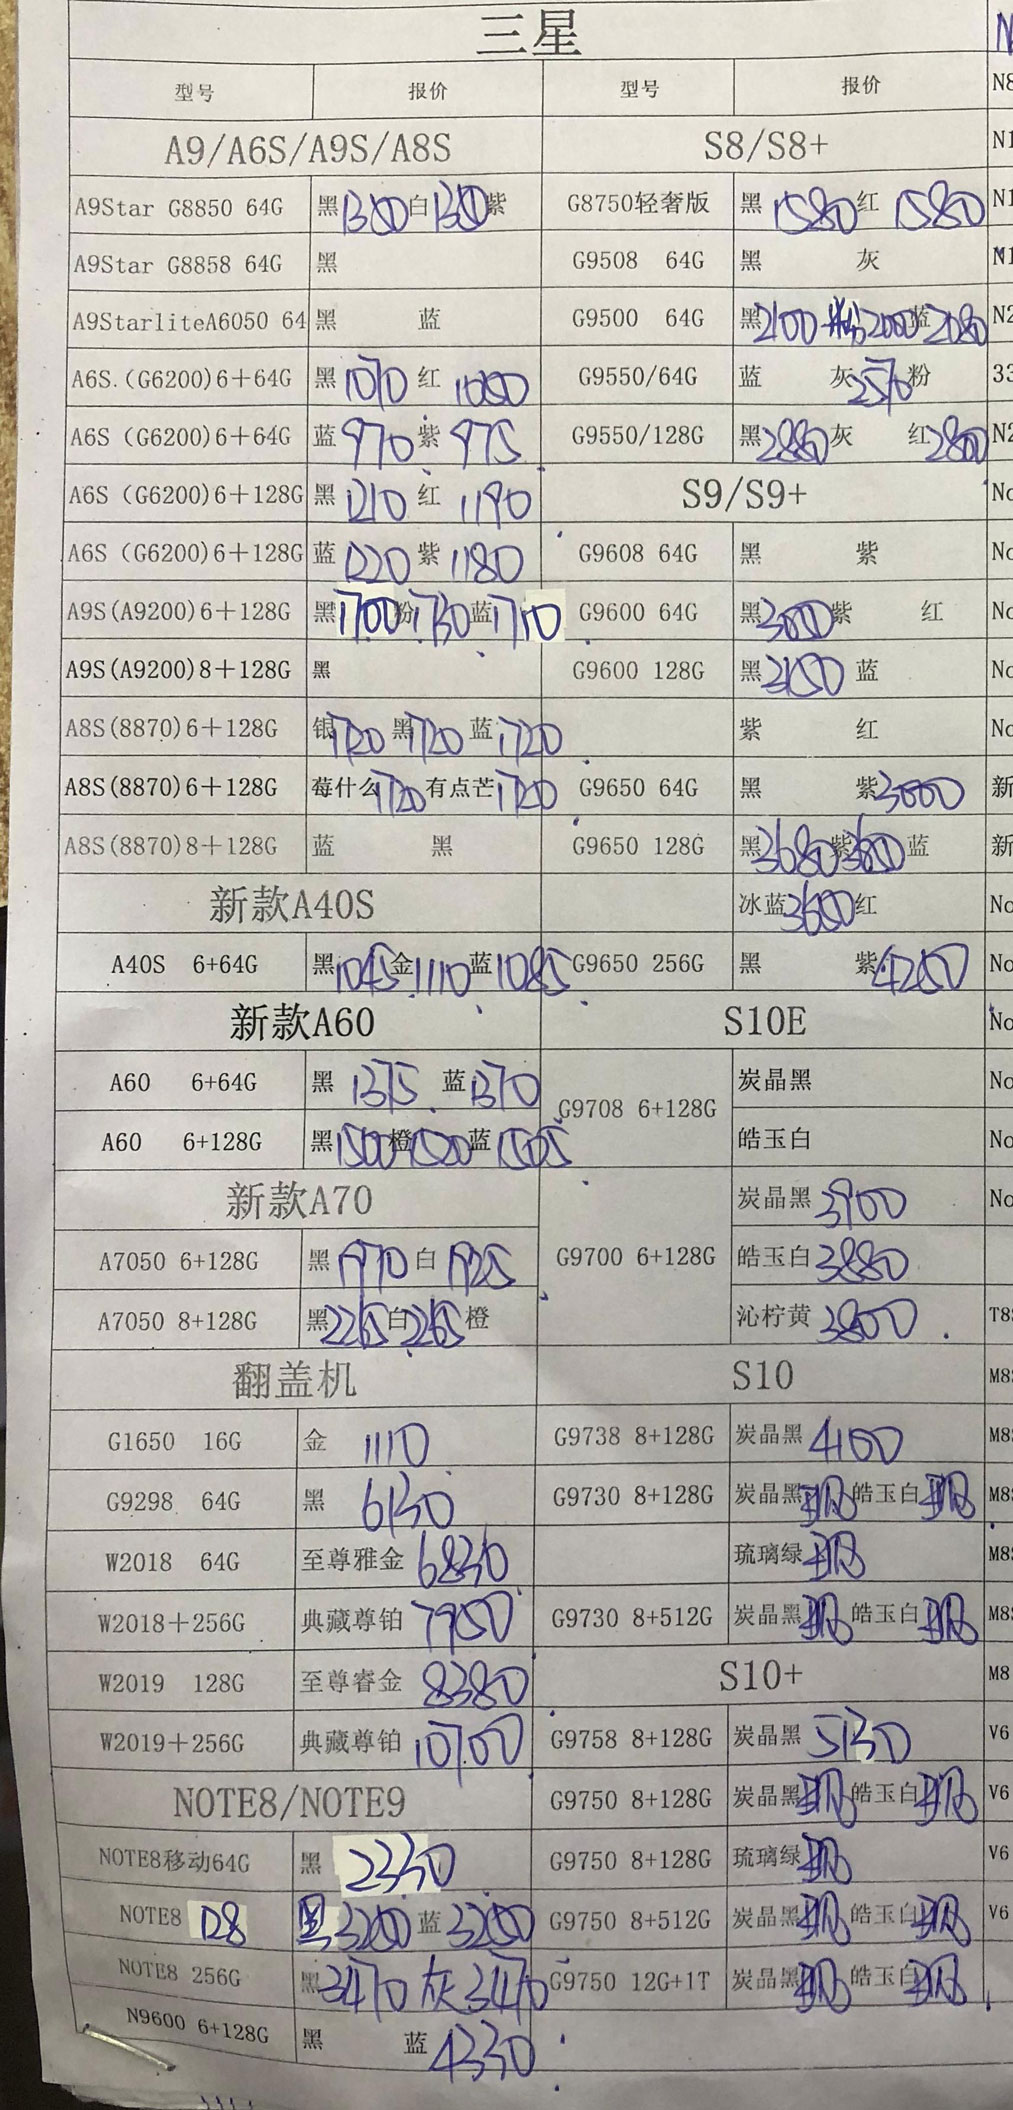 三星
型号 报价 型号 报价
A9/A6S/A9S/A8S S8/S8+
A9Star G8850 64G 黑1350白1350紫 G8750轻奢版 黑1580红 1580
A9Star G8858 64G 黑 G9508 64G 黑 灰
A9StarliteA6050 64 黑 蓝 G9500 64G 黑2100 粉2000蓝2080
A6S.(G6200)6+64G 黑1070红 1080 G9550/64G 蓝 灰2570粉
A6S (G6200)6+64G 蓝970紫975 G9550/128G 黑2880灰 红2800
A6S (G6200)6+128G 黑1210红1190 S9/S9+
A6S (G6200)6+128G 蓝1220紫1180 G9608 64G 黑 紫
A9S(A9200)6+128G 黑1700粉1730蓝1710 G9600 64G 黑3000紫 红
A9S(A9200)8+128G 黑 G9600 128G 黑3150蓝
A8S(8870)6+128G 银1720黑1720蓝1720 紫 红
A8S(8870)6+128G 莓什么1720有点芒1720 G9650 64G 黑 紫3000
A8S(8870)8+128G 蓝 黑 G9650 128G 黑3680紫3600蓝
新款A40S 冰蓝3600红
A40S 6+64G 黑1045金1110蓝1085 G9650 256G 黑 紫4200
新款A60 S10E
A60 6+64G 黑 1375 蓝1370 G9708 6+128G 炭晶黑
A60 6+128G 黑1500橙1520蓝1505 皓玉白
新款A70 炭晶黑3900
A7050 6+128G 黑1970白1925 G9700 6+128G 皓玉白3880
A7050 8+128G 黑2265白2265橙 沁柠黄3800
翻盖机 S10
G1650 16G 金 1110 G9738 8+128G 炭晶黑4100
G9298 64G 黑 6130 G9730 8+128G 炭晶黑 皓玉白
W2018 64G 至尊雅金6830 琉璃绿
W2018+256G 典藏尊铂7950 G9730 8+512G 炭晶黑 皓玉白
W2019 128G 至尊睿金8380 S10+
W2019+256G 典藏尊铂10700 G9758 8+128G 炭晶黑5130
NOTE8/NOTE9 G9750 8+128G 炭晶黑 皓玉白
NOTE8移动64G 黑 2330 G9750 8+128G 琉璃绿
NOTE8 128 黑3200蓝3200 G9750 8+512G 炭晶黑 皓玉白
NOTE8 256G 黑3470灰3470 G9750 12G+1T 炭晶黑 皓玉白
N9600 6+128G 黑 蓝4330